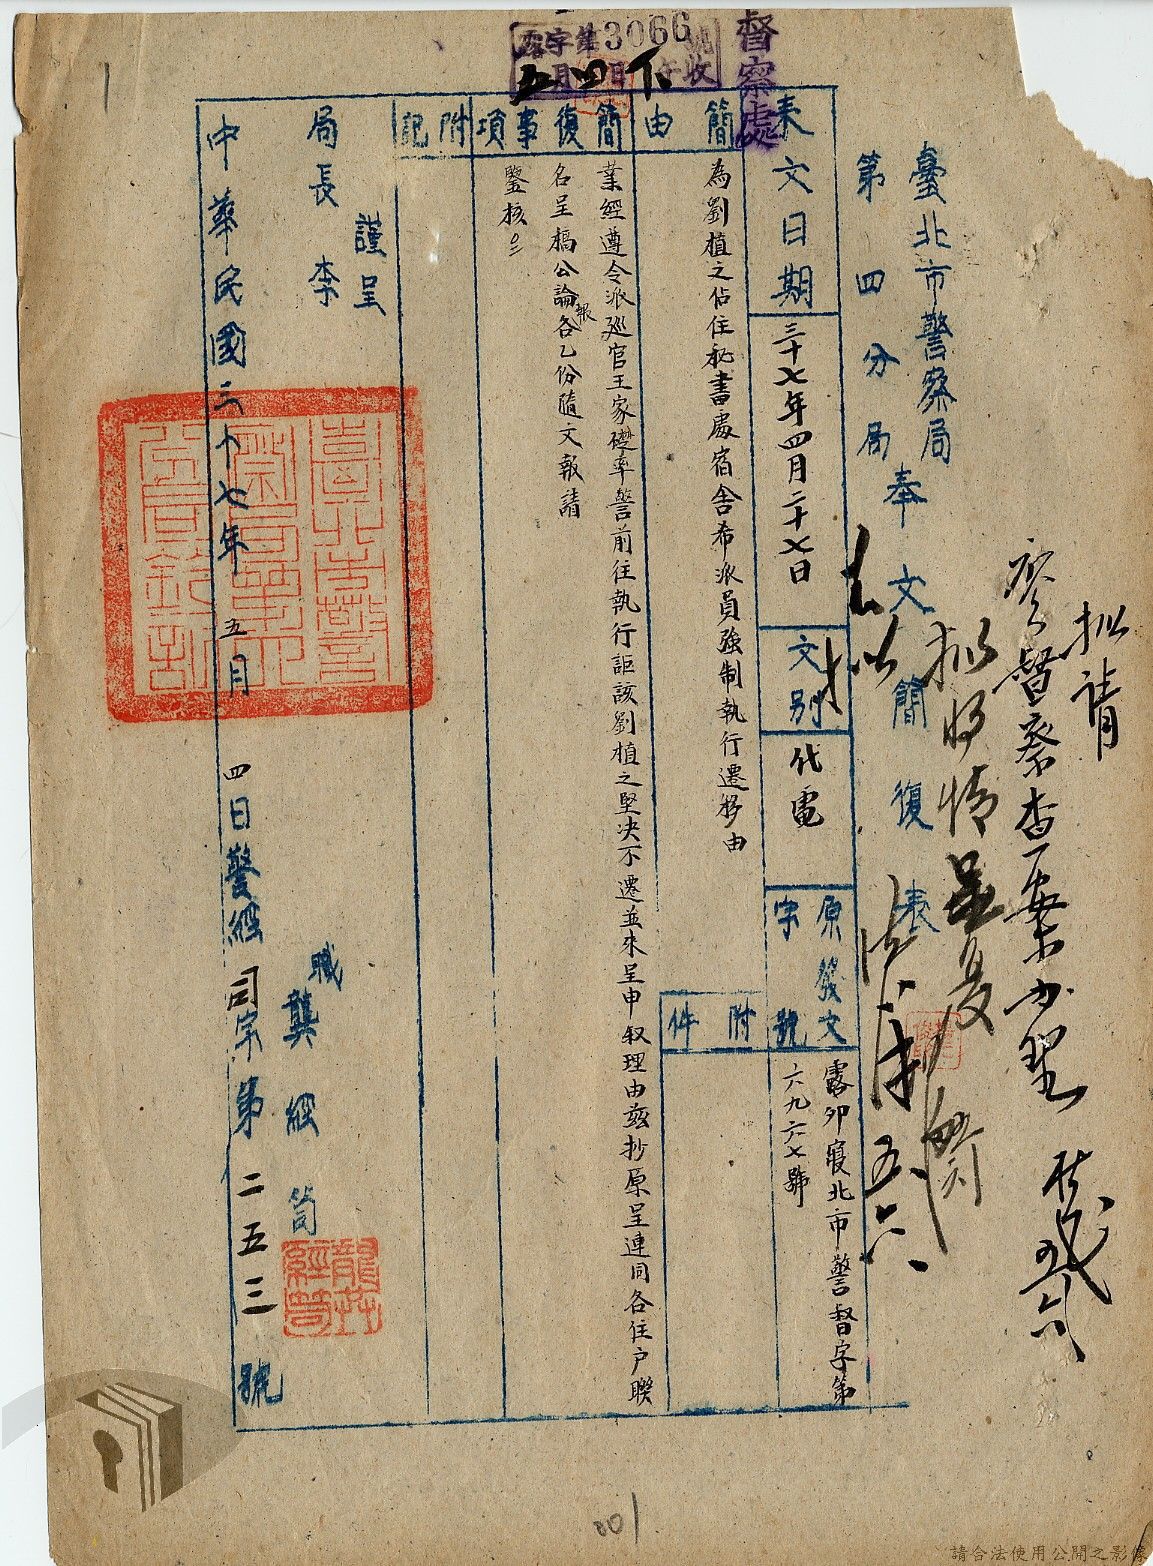 督察處
露字第3066號
月 日 午收
五 四 下
臺北市警察局
第四分局
奉文簡復表
來文日期
三十七年四月二十七日
文別
代電
原發文
字號
露卯寢北市警督字第
六九六七號
簡由
為劉植之佔住秘書處宿舍希派員強制執行遷移由
附件
簡復事項
業經遵令派巡官王家礎率警前往執行詎該劉植之堅決不遷並來呈申敘理由茲抄原呈連同各住戶聯
名呈稿公論報各乙份隨文報請
鑒核
附記
謹呈
局長李
職龔經笥
龔經笥
中華民國三十七年五月四日警經司字第二五三號
擬請
督察查案办理
擬將情呈复
五六
001
請合法使用公開之影像